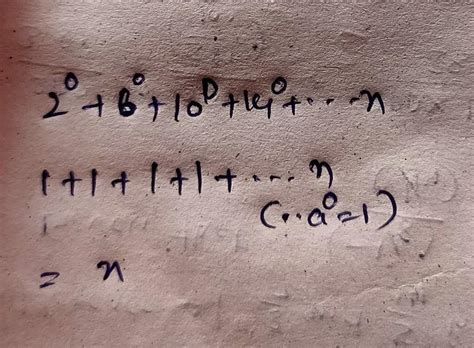 2⁰+6⁰+10⁰+14⁰+....n
1+1+1+1+....n
(∵a⁰=1)
= n